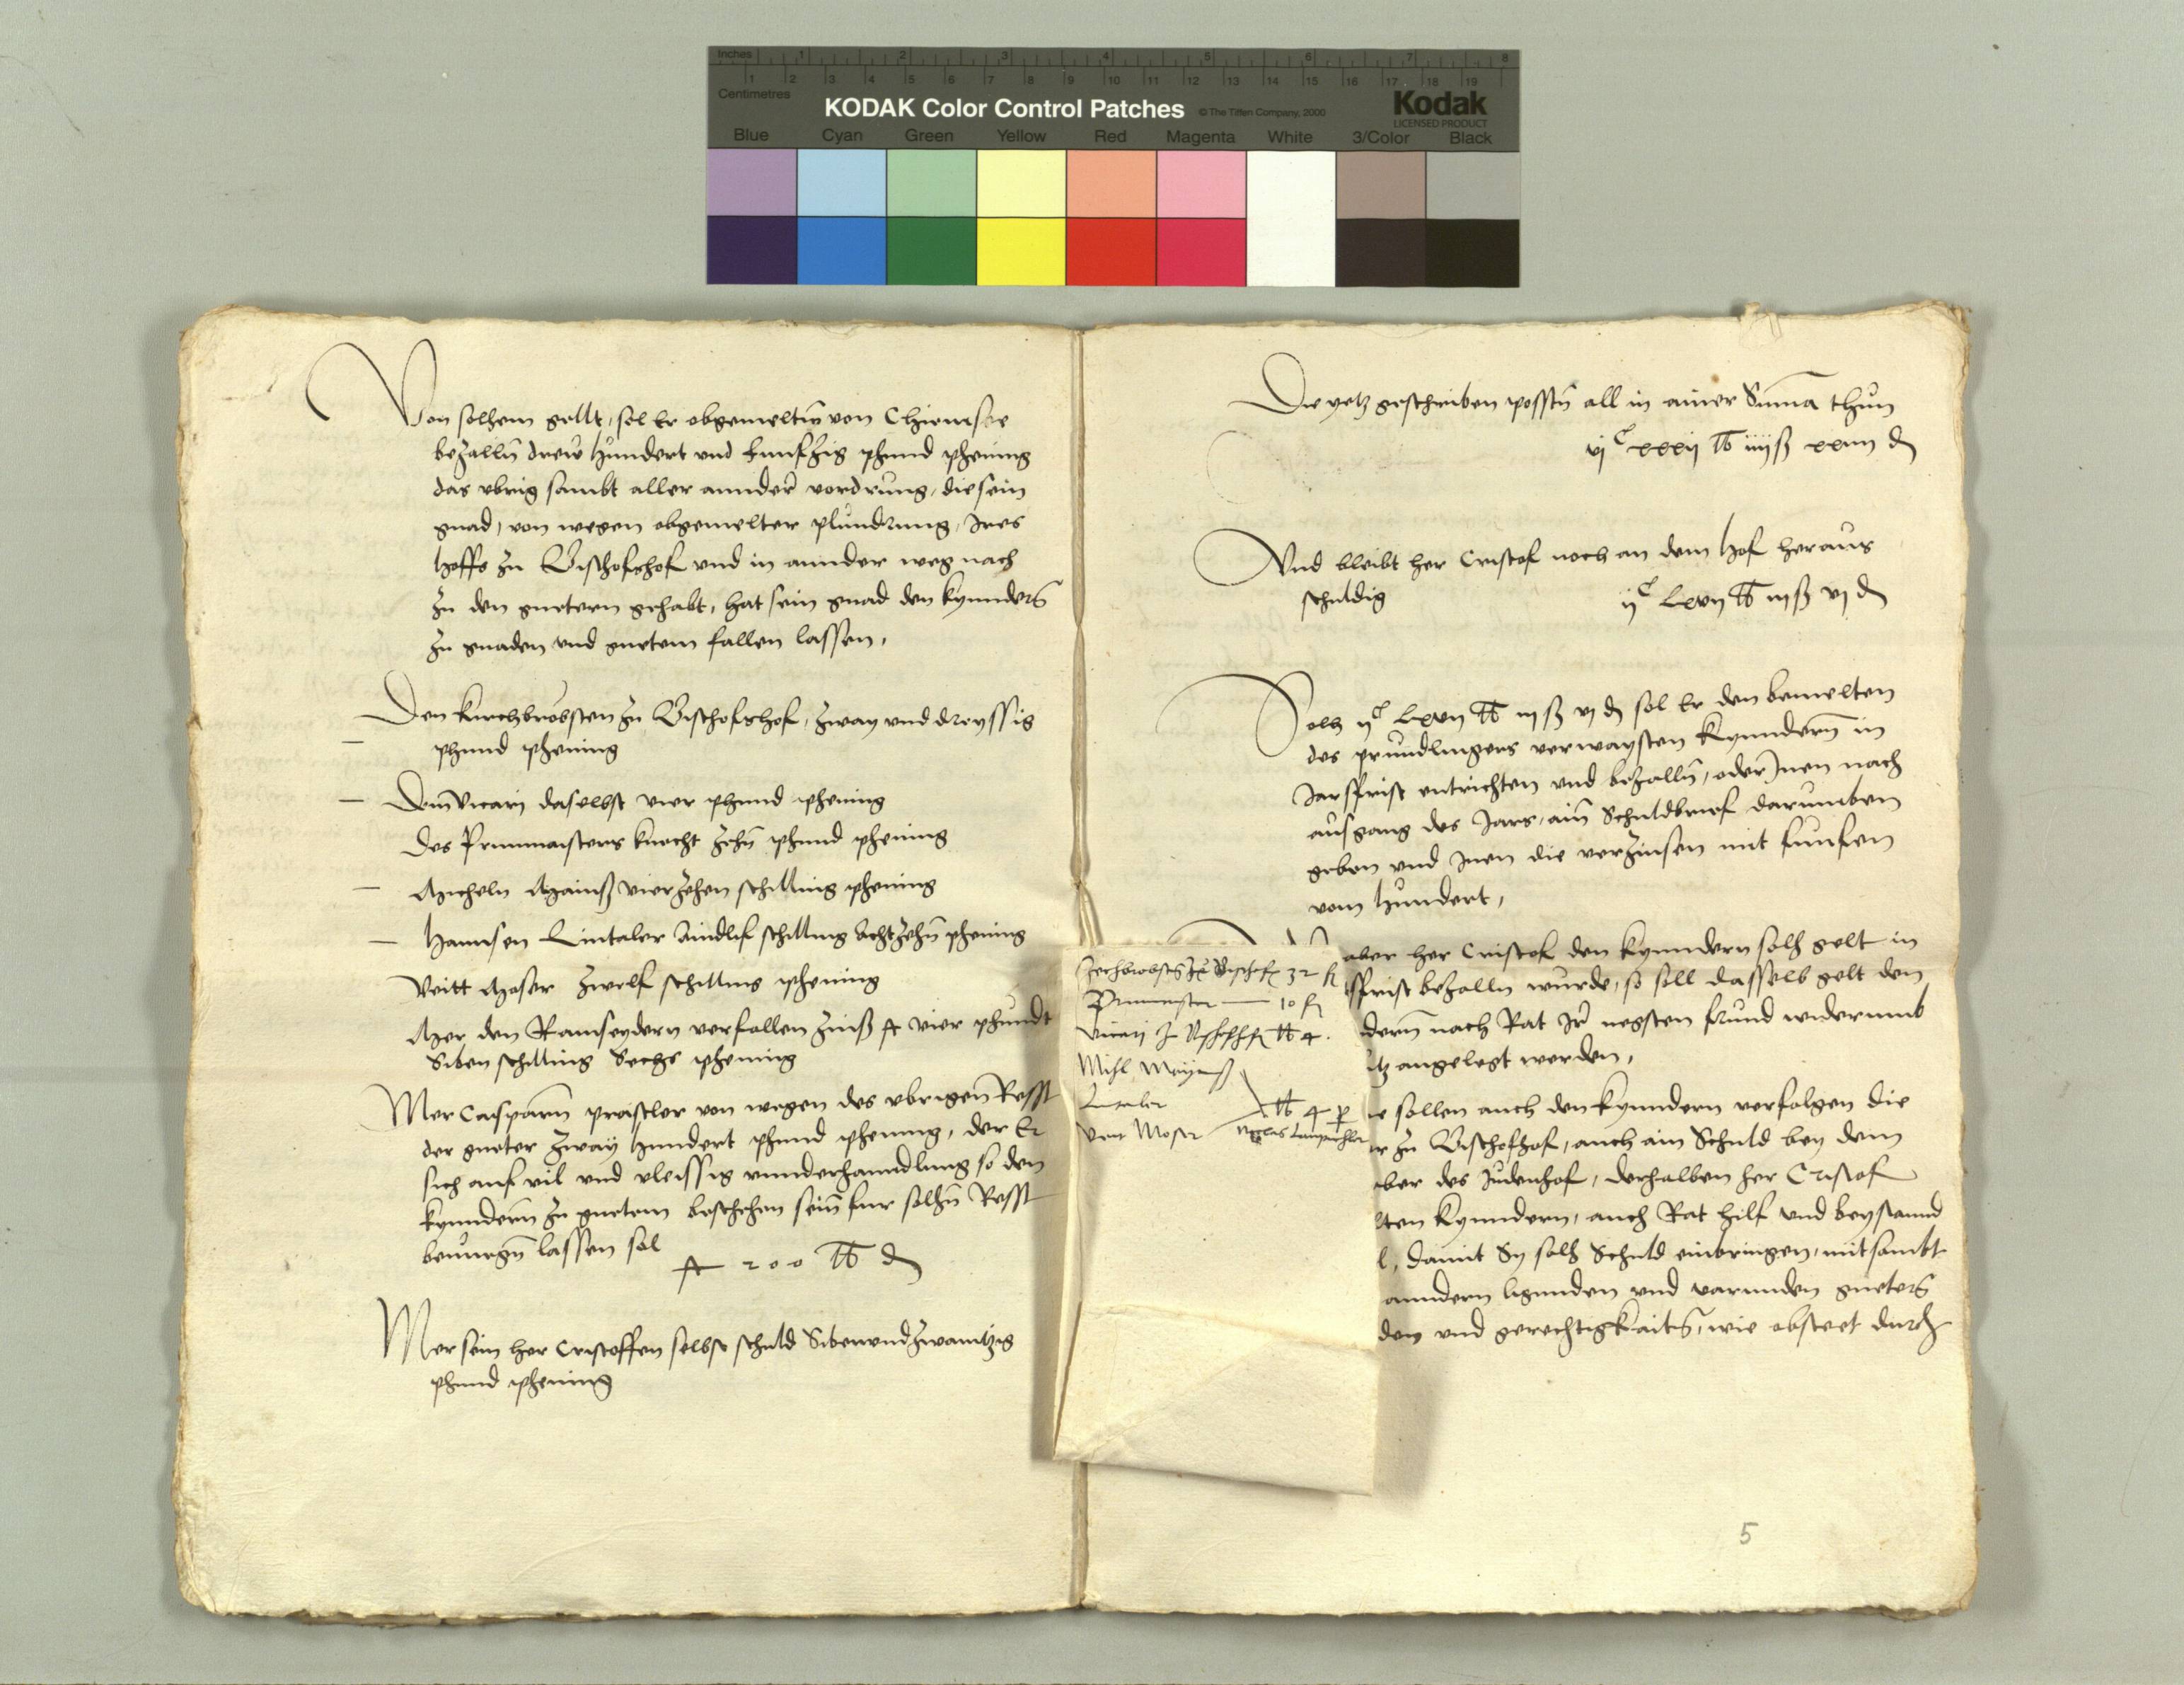 Inches 1 2 3 4 5 6 7 8
1 2 3 4 5 6 7 8 9 10 11 12 13 14 15 16 17 18 19
Centimetres
KODAK Color Control Patches © The Tiffen Company, 2000 Kodak
LICENSED PRODUCT
Blue Cyan Green Yellow Red Magenta White 3/Color Black
Von solhem gellt, sol Er obgemelten von Chiemsee
bezallen drew hundert und funfzig phund phening
das ubrig sambt aller annder vordrung, die sein
gnad, von wegen obgemelter plundrung, Ires
hoffs zu Bischofshof und in annder weg nach
zu den guetern gehabt, hat sein gnad den kynndern
zu gnaden und guetem fallen lassen,
Den kirchbröbsten zu Bischofshof, zway und dreyssig
phund phening
Dem Vicari daselbst vier phund phening
Des Prunmaisters knecht zehen phund phening
Micheln Mainß vierzehen schilling phening
Hannsen Lintaler Aindlif schilling achtzehen phening
Veitt Moser zwelf schilling phening
Mer den Ramseydern verfallen zinß vier phundt
Siben schilling Sechs phening
Mer Casparn prästler von wegen des ubrigen Resst
der gueter zway hundert phund phening, der Er
sich auf vil und vleissig unnderhanndlung so den
kynndern zu guetem beschehen sein fur solhen Resst
benuegen lassen sol
200 ℔ ₰
Mer sein her Cristoffen selbs schuld Sibenundzwaintzig
phund phening
Die yetz geschriben possten all in ainer Suma thun
vjC xxxij ℔ iiij ß xxiiij ₰
Und bleibt her Cristof noch an dem hof heraus
schuldig ijC Lxvij ℔ iij ß vj ₰
Solh ijC Lxvij ℔ iij ß vj ₰ sol Er den bemelten
des prundlingers verwaysten kynndern in
Jarsfrist entrichten und bezallen, oder Inen nach
ausgang des Jars, ain Schuldbrief darumben
geben und Inen die verzinsen mit funfen
vom hundert,
aber her Cristof den kynndern solh gelt in
sfrist bezalln wurde, so soll dasselb gelt den
dern nach Rat Ir negsten frund widerumb
tz angelegt werden,
e sollen auch den kynndern verfolgen die
r zu Bischofhof, auch ain Schuld bey dem
ber des Judenhof, derhalben her Cristof
lten kynndern, auch Rat hilf und beystannd
l, damit Sy solh Schuld einbringen, mitsambt
anndern ligunden und varunden guetern
den und gerechtigkaiten, wie obsteet durch
Zechbrobsts zu Bischof 32 fl
Prunmaister — 10 fl
Vicari zu Bischofhof ℔ 4.
Michl Mainß
Lintaler
Veit Moser
℔ 4
5